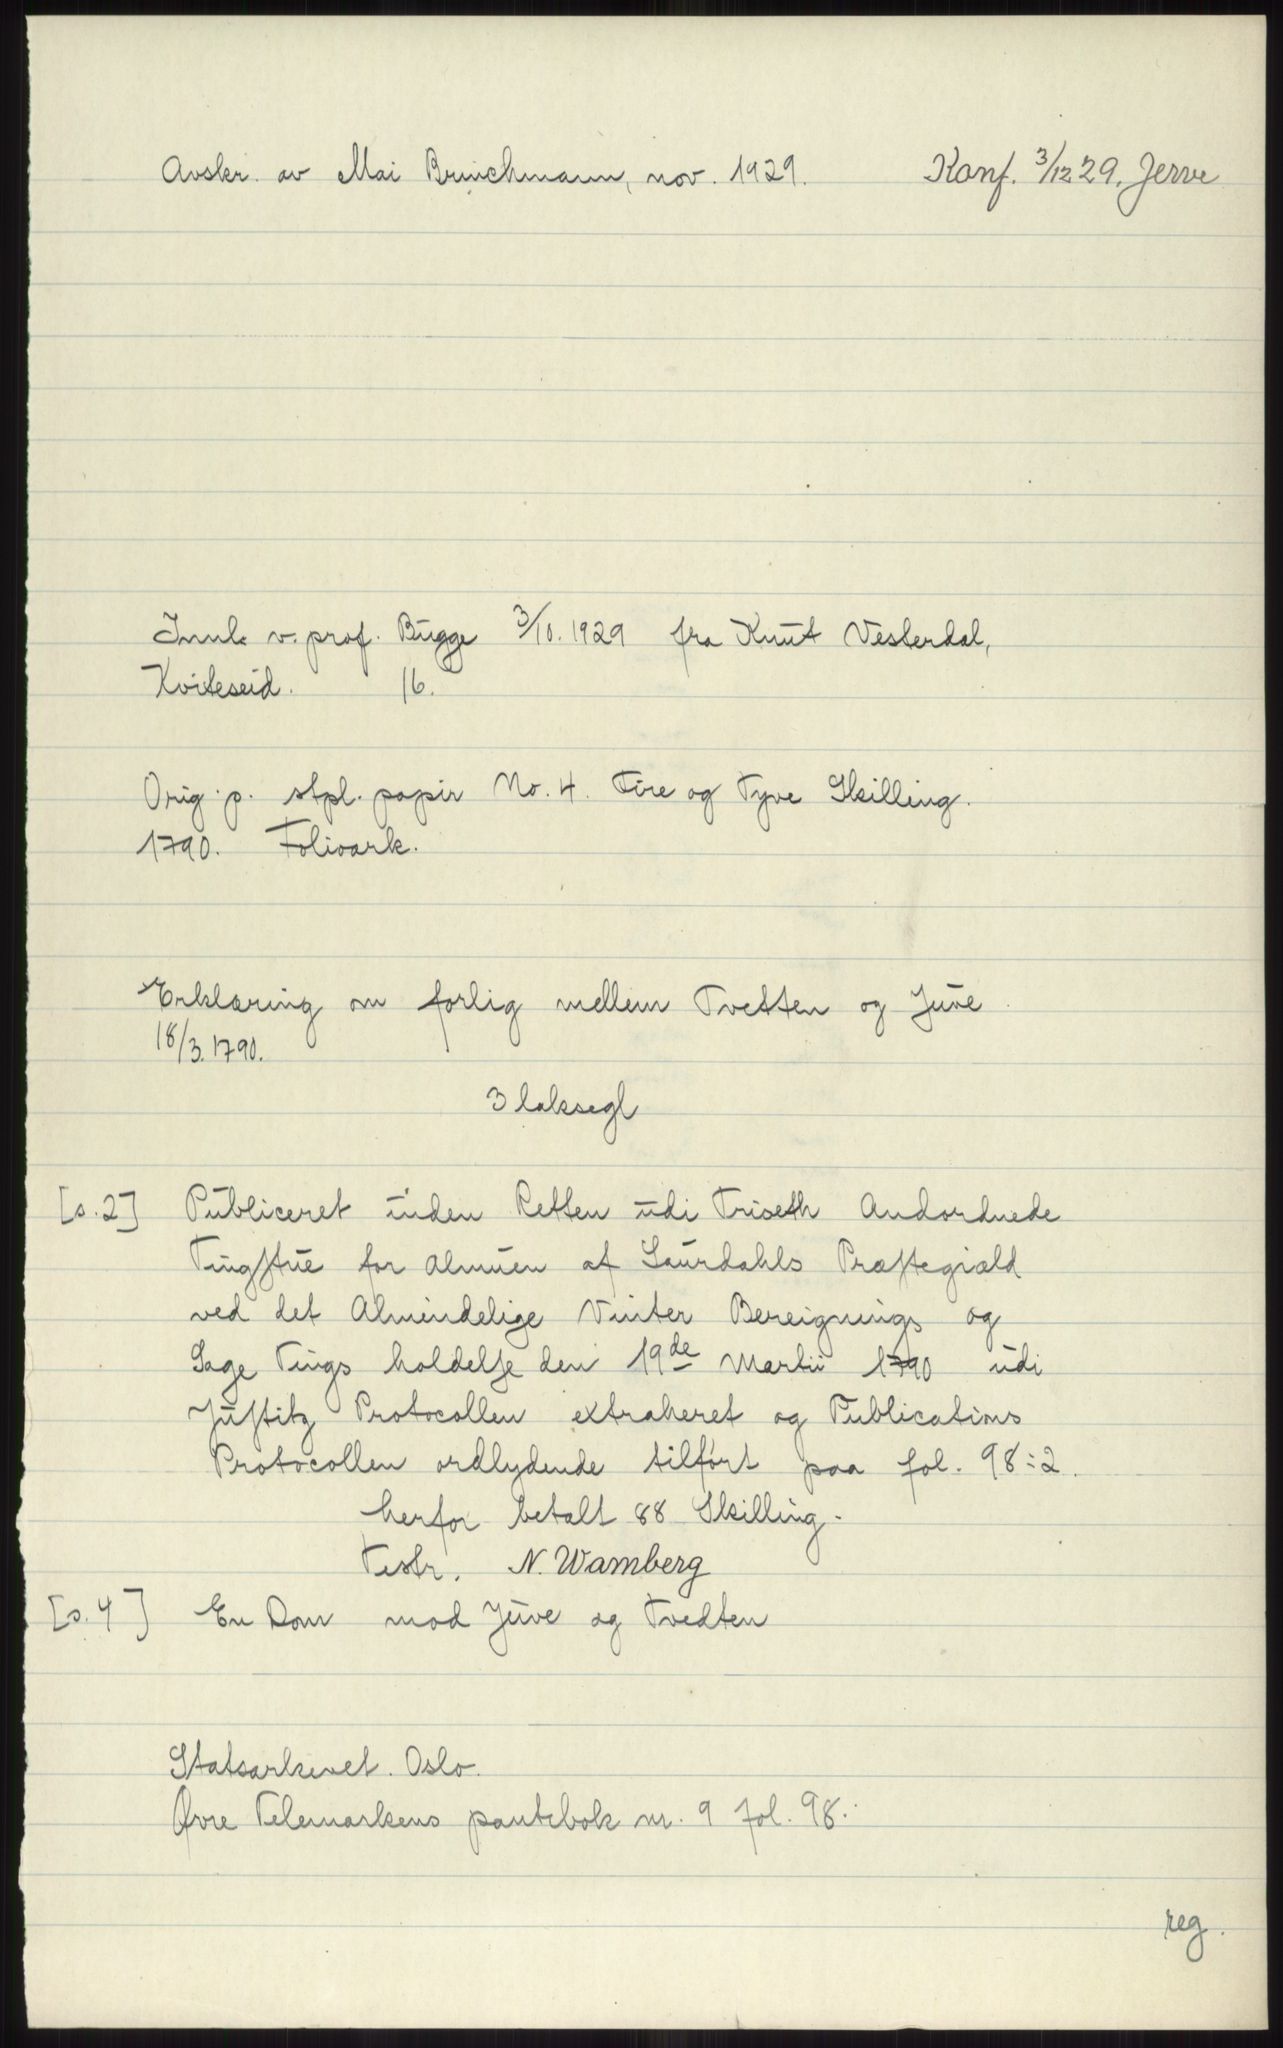 Avskr. av Mai Brinchmann, nov. 1929. Konf. 3/12 29. Jerve
Innl. v. prof. Bugge 3/10. 1929 fra Knut Vesterdal,
Kviteseid. 16.
Orig. p. stpl. papir No. 4. Fire og Tyve Skilling.
1790. Folioark.
Erklæring om forlig mellem Tvetten og Juve
18/3. 1790.
3 laksegl
[s. 2] Publiceret inden Retten udi Triseth Andordnede
Tingstue for Almuen af Laurdahls Præstegiæld
ved det Almindelige Vinter Bereignings og
Sage Tings holdelse den 19de Martii 1790 udi
Justitz Protocollen extraheret og Publications
Protocollen ordlydende tilført paa fol. 98:2.
herfor betalt 88 Skilling.
Testr. N. Wamberg
[s. 4] En Dom mod Juve og Tvedten
Statsarkivet. Oslo.
Øvre Telemarkens pantebok nr. 9 fol. 98.
reg.